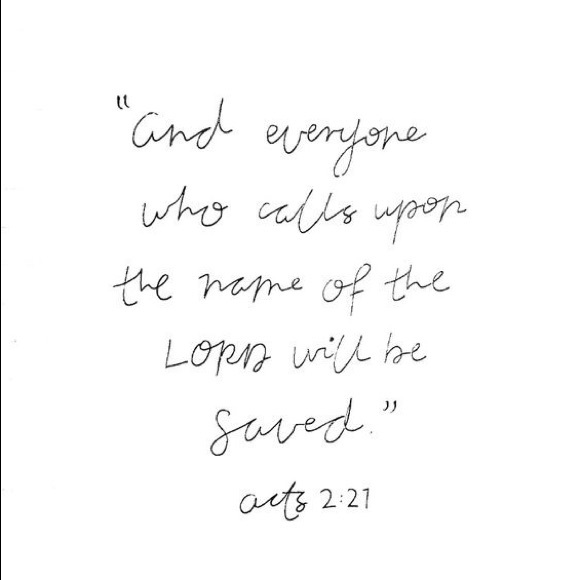 "and everyone
who calls upon
the name of the
LORD will be
saved."
acts 2:21